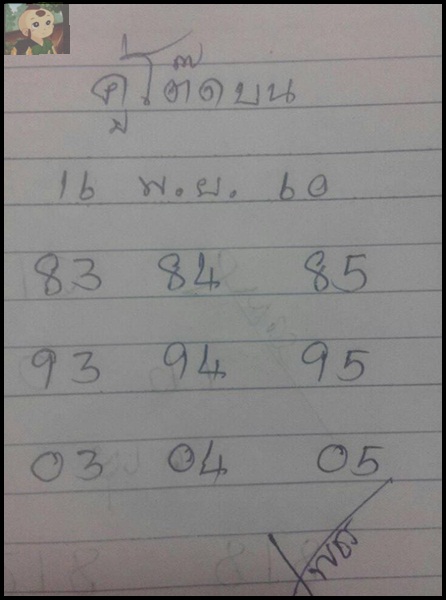 คู่โต๊ดบน
16 พ.ย. 60
83 84 85
93 94 95
03 04 05